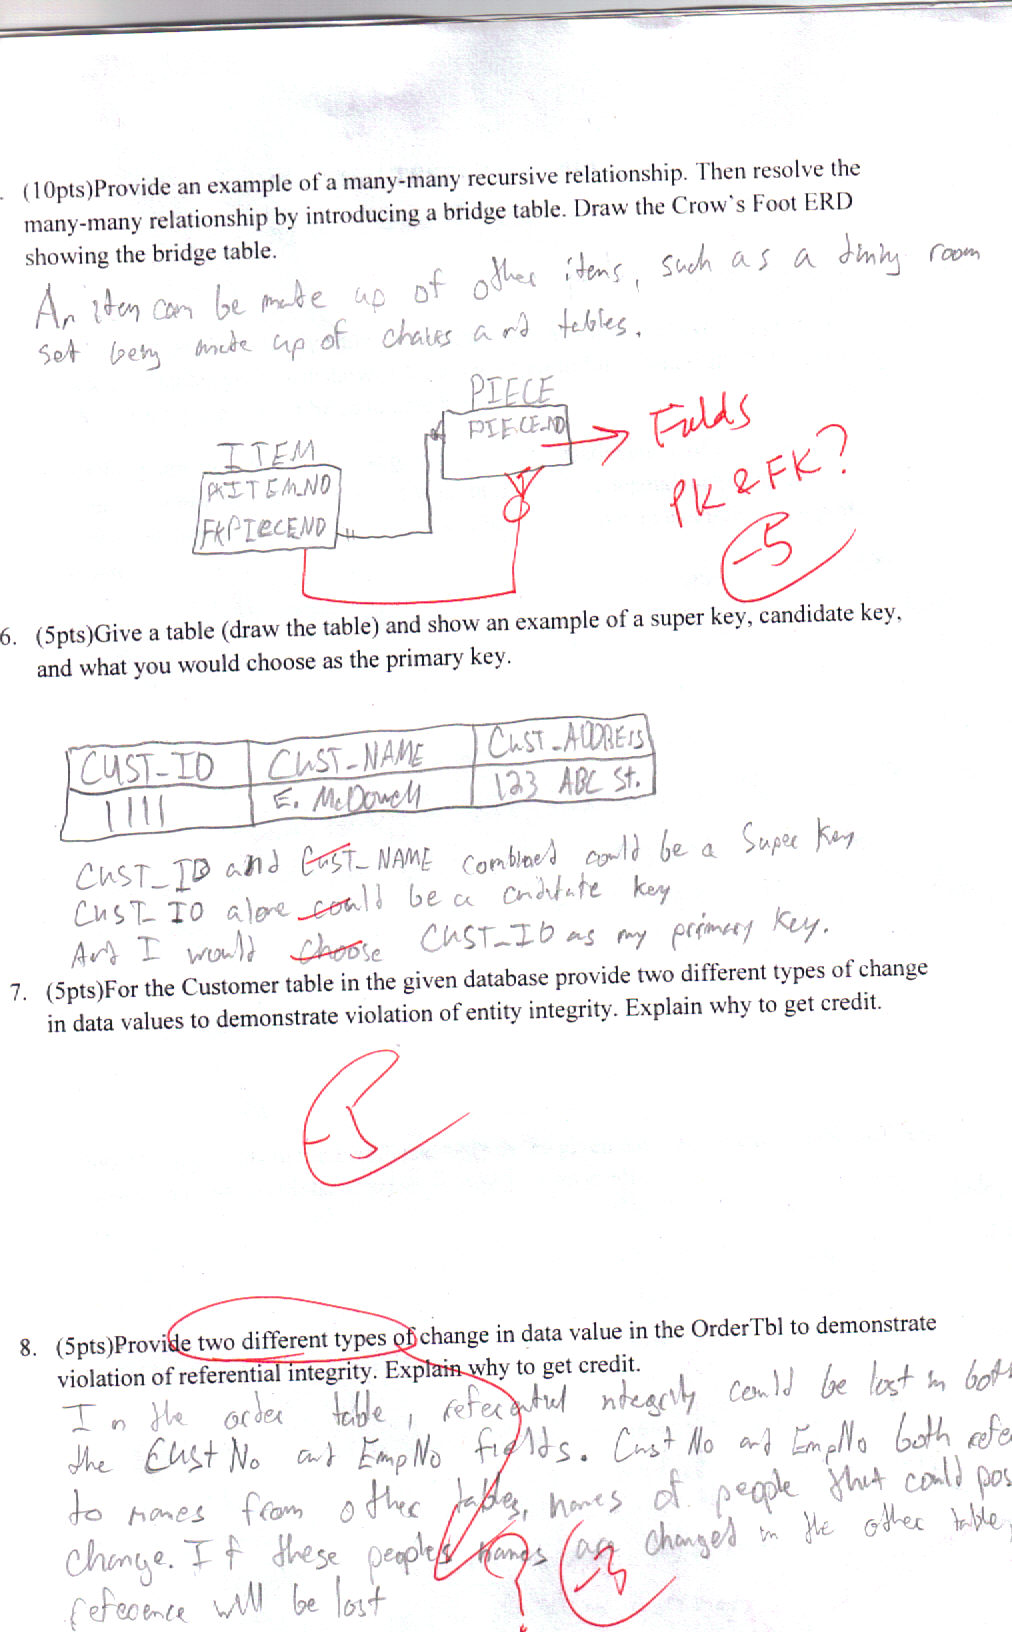 . (10pts)Provide an example of a many-many recursive relationship. Then resolve the
many-many relationship by introducing a bridge table. Draw the Crow's Foot ERD
showing the bridge table.
An item can be made up of other items, such as a dining room
set being made up of chairs and tables.
PIECE
PIECE_NO
ITEM
PK ITEM_NO
FK PIECENO
Fields
PK & FK?
-5
6. (5pts)Give a table (draw the table) and show an example of a super key, candidate key,
and what you would choose as the primary key.
CUST_ID CUST_NAME CUST_ADDRESS
1111 E. McDowell 123 ABC St.
CUST_ID and CUST_NAME combined could be a Super Key
CUST_ID alone could be a key
And I would choose CUST_ID as my primary key.
7. (5pts)For the Customer table in the given database provide two different types of change
in data values to demonstrate violation of entity integrity. Explain why to get credit.
-5
8. (5pts)Provide two different types of change in data value in the OrderTbl to demonstrate
violation of referential integrity. Explain why to get credit.
In the order table, referential integrity could be lost in both
the CustNo and EmpNo fields. CustNo and EmpNo both refe
to names from other tables, names of people that could pos
change. If these people's names are changed in the other table,
reference will be lost
?
-3